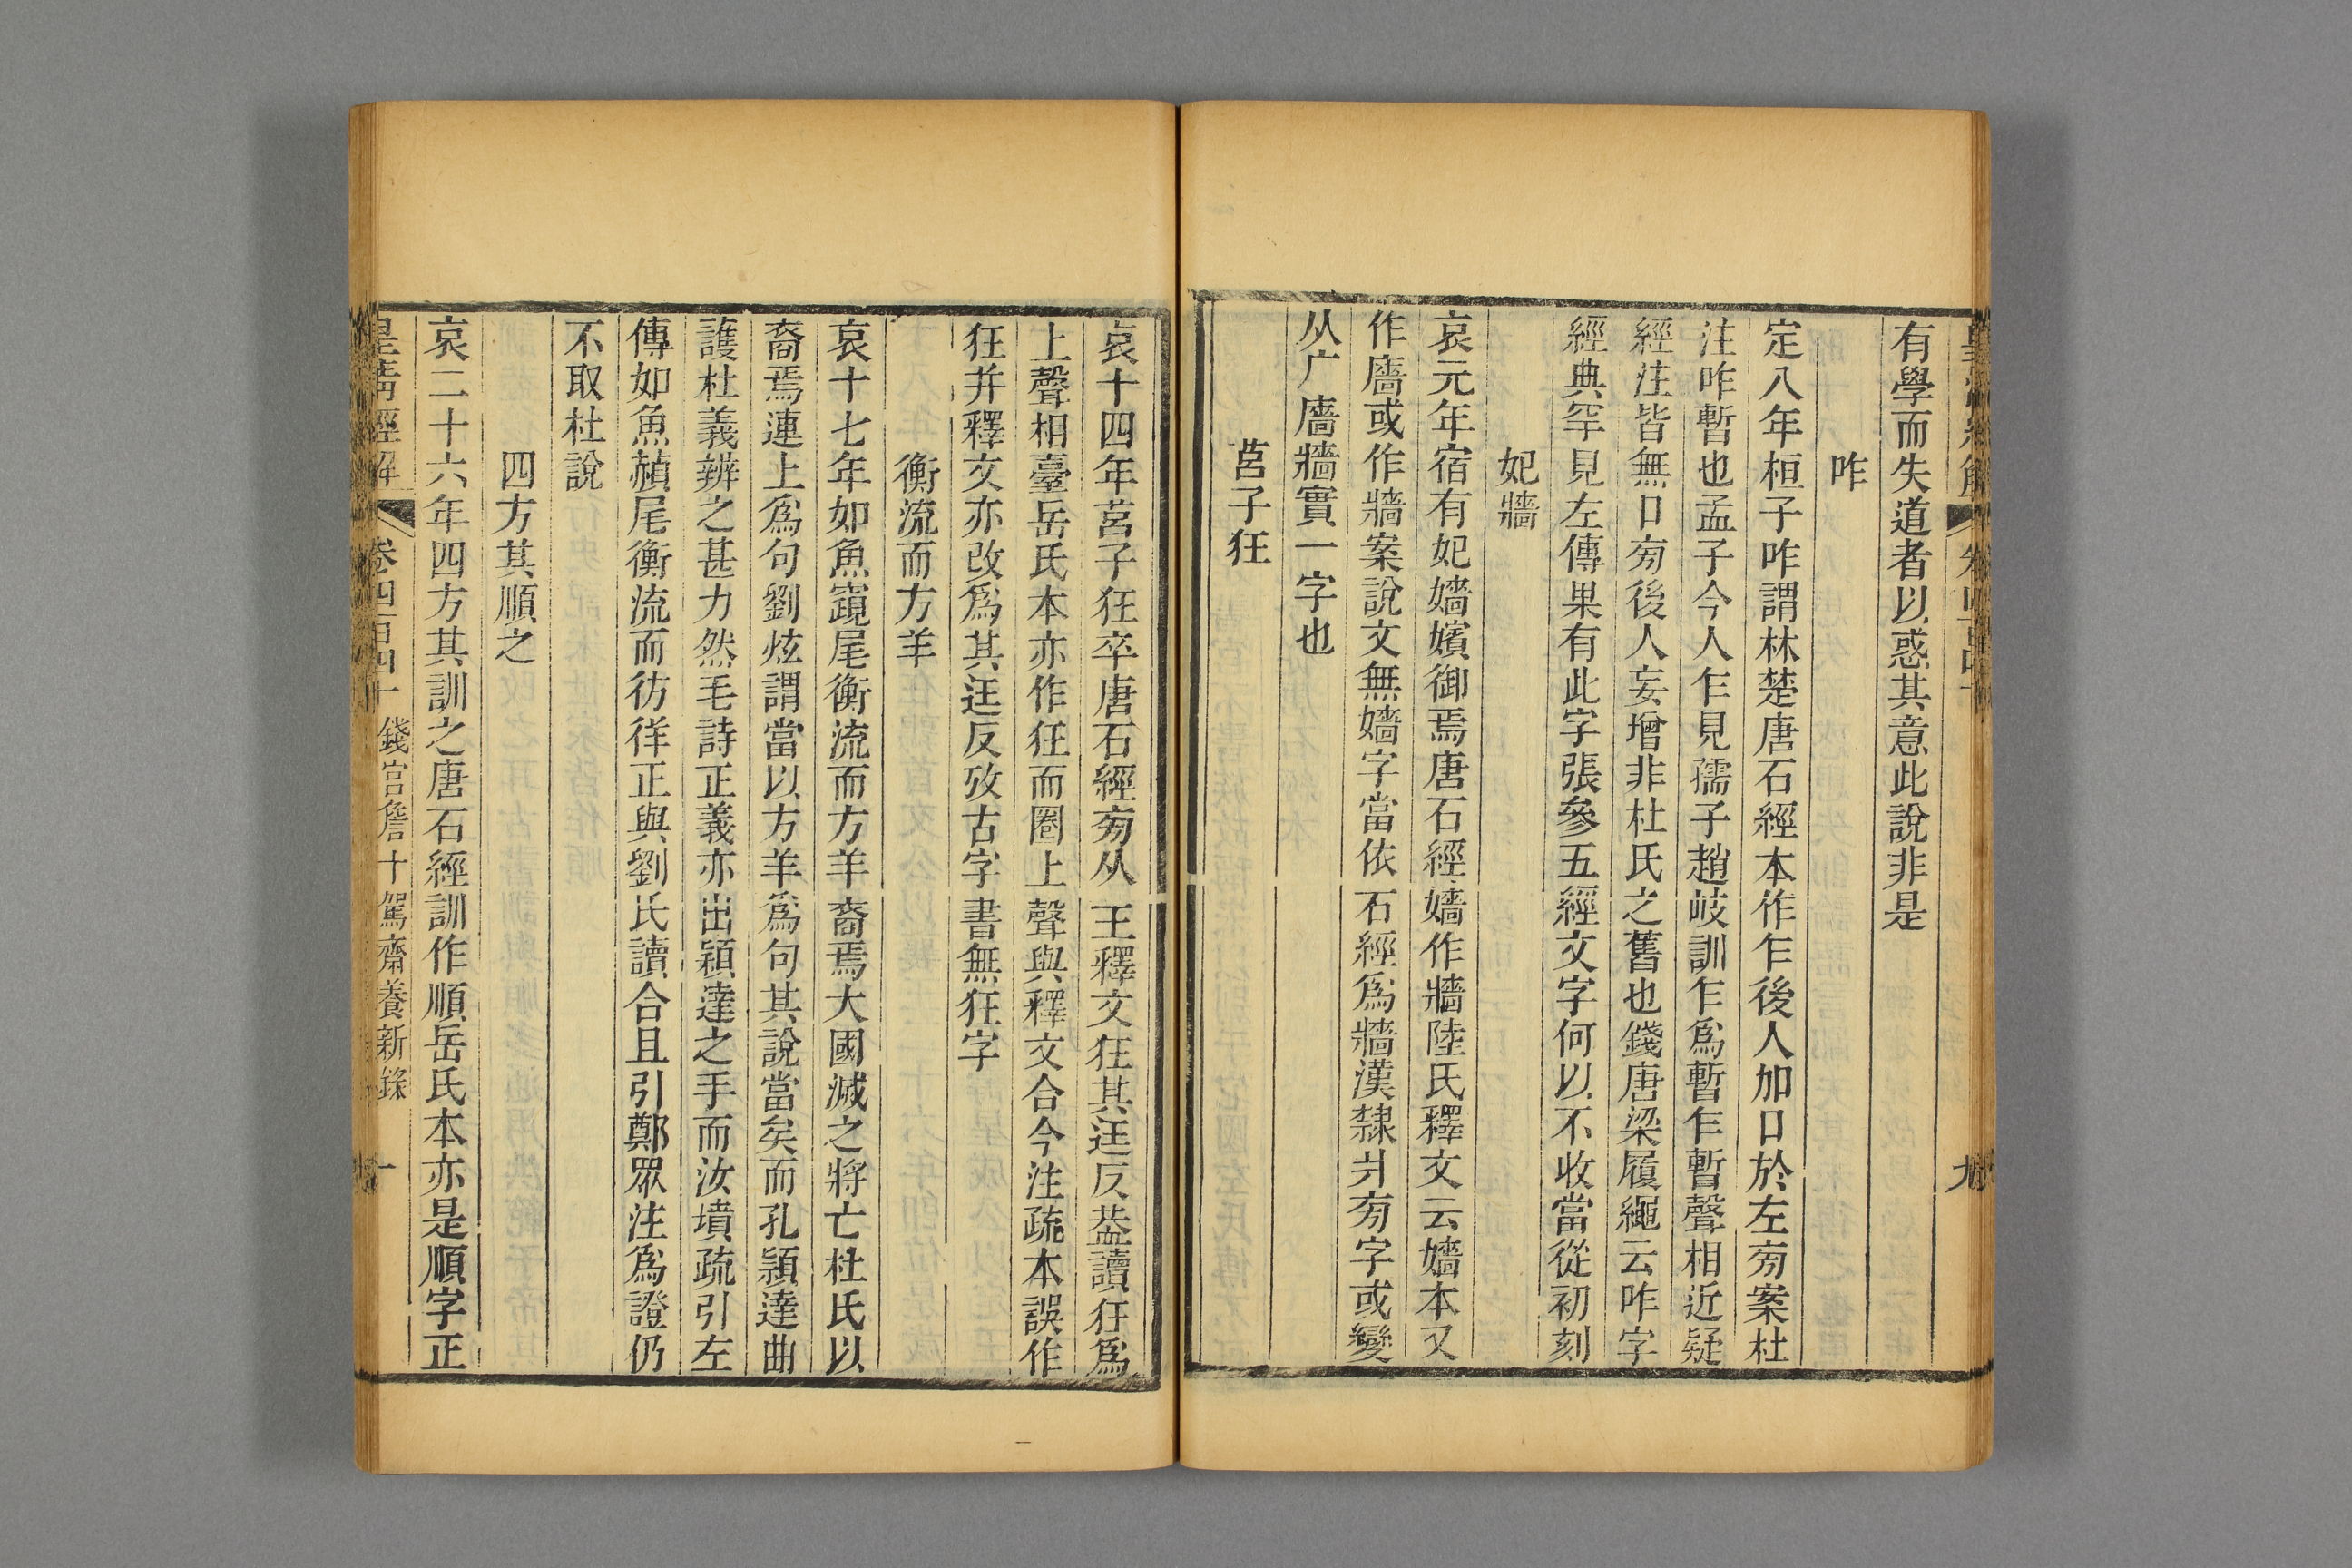 有學而失道者以惑其意此說非是
咋
定八年桓子咋謂林楚唐石經本作乍後人加口於左㫄案杜
注咋暫也孟子今人乍見孺子趙岐訓乍爲暫乍暫聲相近疑
經注皆無口㫄後人妄增非杜氏之舊也錢唐梁履繩云咋字
經典罕見左傳果有此字張參五經文字何以不收當從初刻
妃牆
哀元年宿有妃嬙嬪御焉唐石經嬙作牆陸氏釋文云嬙本又
作廧或作牆案說文無嬙字當依石經爲牆漢隸爿㫄字或變
从广廧牆實一字也
莒子狂
哀十四年莒子狂卒唐石經㫄从王釋文狂其迋反葢讀狂爲
上聲相臺岳氏本亦作狂而圈上聲與釋文合今注疏本誤作
狂并釋文亦改爲其迋反攷古字書無狂字
衡流而方羊
哀十七年如魚竀尾衡流而方羊裔焉大國滅之將亡杜氏以
裔焉連上爲句劉炫謂當以方羊爲句其說當矣而孔穎達曲
護杜義辨之甚力然毛詩正義亦出穎達之手而汝墳疏引左
傳如魚赬尾衡流而彷徉正與劉氏讀合且引鄭眾注爲證仍
不取杜說
四方其順之
哀二十六年四方其訓之唐石經訓作順岳氏本亦是順字正
皇清經解 卷四百四十 錢宮詹十駕齋養新錄